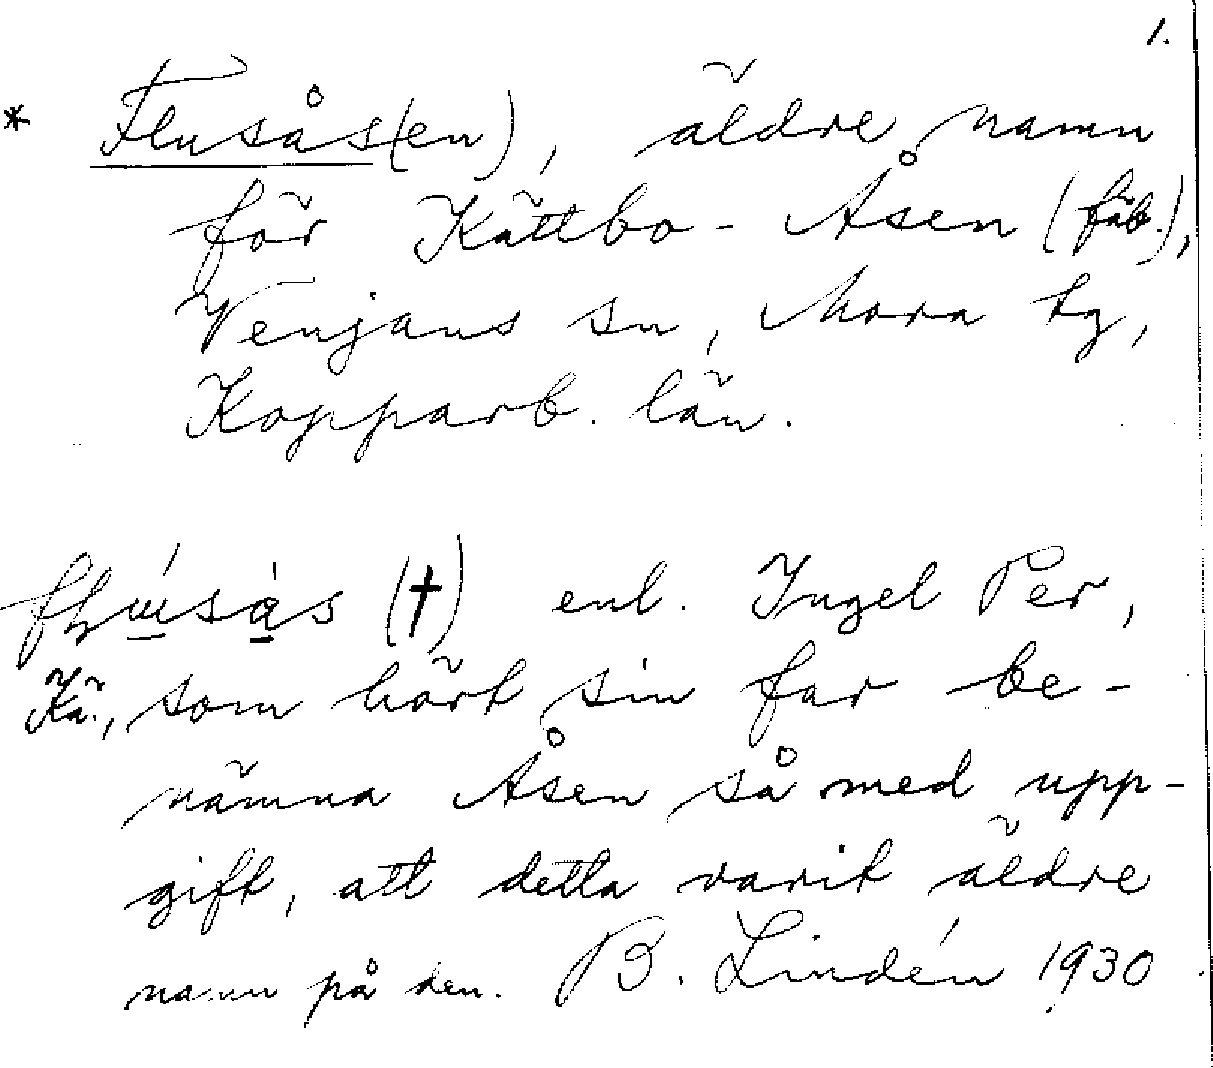 1.
* Flusås(en), äldre namn
för Kättbo-Åsen (fäb.),
Venjans sn, Mora tg,
Kopparb. län.
(†) enl. Ingel Per,
Kä., som hört sin far be-
nämna Åsen så med upp-
gift, att detta varit äldre
namn på den. B. Lindén 1930